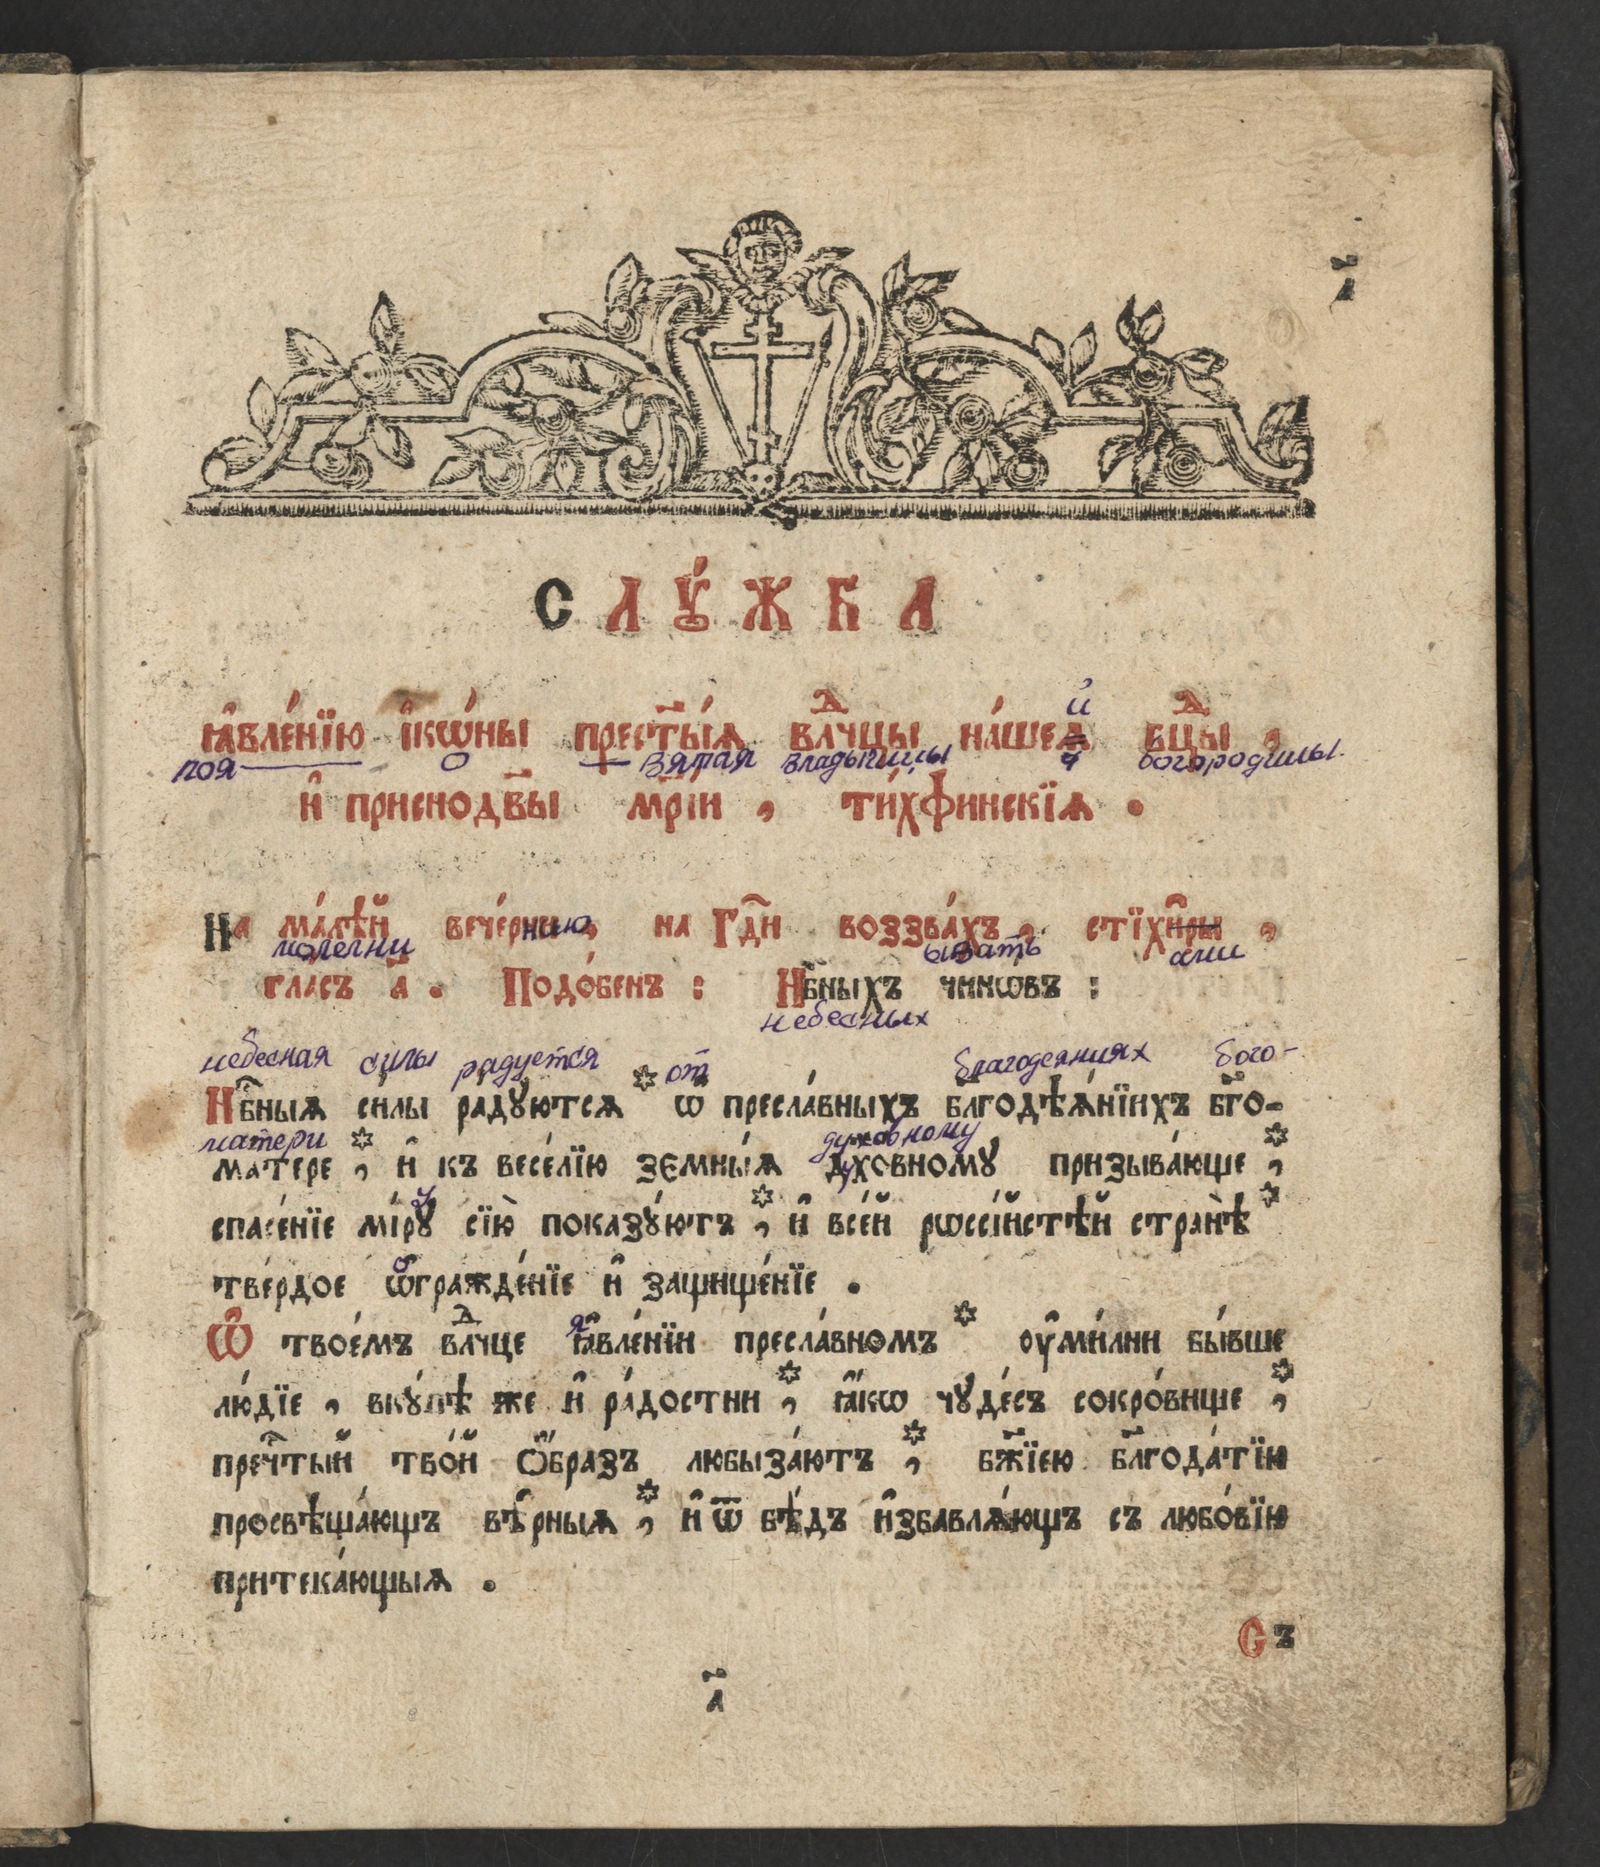 а҃
СЛꙋ́ЖБА
ꙗ҆вле́нїю і҆кѡ́ны прест҃ы́ѧ влⷣчцы на́шеѧ бцⷣы ,
й
поя о вятая владычицы я богородицы.
и҆ приснодв҃ы мр҃і́и , ти́хфинскїѧ .
На ма́лѣй вече́рнию, на Гдⷭ҇и воззва́хъ , стїхи҆ры ,
молелни ывать ами
гласъ а҃ . Подо́бенъ : Нбⷭ҇ныхъ чинѡвъ :
небесных
небесная силы радуется от благодеяниях бого-
Нбⷭ҇ныѧ силы ра́дꙋютсѧ * ѡ пресла́вныхъ бл҃годѣѧ́нїихъ бг҃о-
матери духовному
матере , * и҆ къ весе́лїю земны́ѧ дх҃овномꙋ призыва́юще , *
спасе́нїе мі́рꙋ сїю̀ показꙋ́ютъ , * и҆ все́й рѡссі́йстѣй странѣ̀ *
тве́рдое ѡ҆гражде́нїе и҆ защище́нїе .
Ѡ҆ твое́мъ влⷣчце ꙗ҆вле́нїи пресла́вномъ * оу҆ми́лни бы́вше
лю́дїе , вкꙋ́пѣ же и҆ ра́достни , * ꙗ҆́кѡ чꙋде́съ сокро́вище , *
пречⷭ҇тый тво́й ѡ҆́бразъ любыза́ютъ , * бж҃їею бл҃года́тїю
просвѣща́ющъ вѣ́рныѧ , * и҆ ѿ бѣ́дъ и҆збавлѧ́ющъ съ любо́вїю
притека́ющыѧ .
Съ
а҃